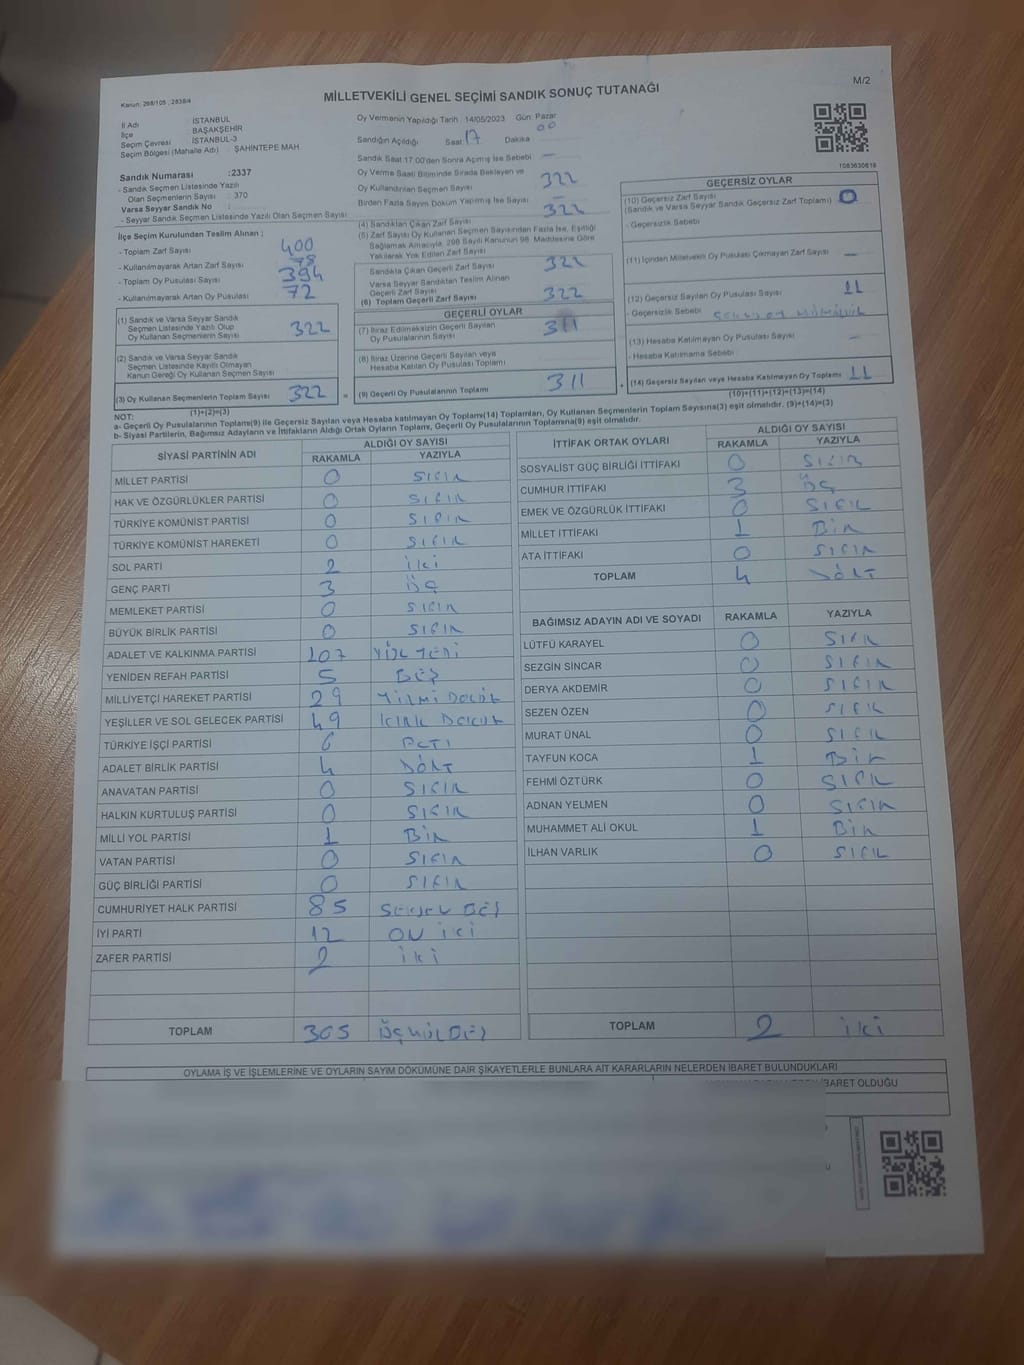 Kanun: 298/105 ; 2839/4
MİLLETVEKİLİ GENEL SEÇİMİ SANDIK SONUÇ TUTANAĞI
M/2
İl Adı İSTANBUL
İlçe BAŞAKŞEHİR
Seçim Çevresi İSTANBUL-3
Seçim Bölgesi (Mahalle Adı) ŞAHİNTEPE MAH
Sandık Numarası :2337
- Sandık Seçmen Listesinde Yazılı
Olan Seçmenlerin Sayısı : 370
Varsa Seyyar Sandık No
- Seyyar Sandık Seçmen Listesinde Yazılı Olan Seçmen Sayısı
İlçe Seçim Kurulundan Teslim Alınan ;
- Toplam Zarf Sayısı 400
- Kullanılmayarak Artan Zarf Sayısı 78
- Toplam Oy Pusulası Sayısı 394
- Kullanılmayarak Artan Oy Pusulası 72
(1) Sandık ve Varsa Seyyar Sandık
Seçmen Listesinde Yazılı Olup
Oy Kullanan Seçmenlerin Sayısı 322
(2) Sandık ve Varsa Seyyar Sandık
Seçmen Listesinde Kayıtlı Olmayan
Kanun Gereği Oy Kullanan Seçmen Sayısı
(3) Oy Kullanan Seçmenlerin Toplam Sayısı 322
(1)+(2)=(3)
Oy Vermenin Yapıldığı Tarih : 14/05/2023 Gün Pazar
Sandığın Açıldığı Saat 17 Dakika 00
Sandık Saat 17:00'den Sonra Açılmış İse Sebebi —
Oy Verme Saati Bitiminde Sırada Bekleyen ve
Oy Kullandırılan Seçmen Sayısı 322
Birden Fazla Sayım Döküm Yapılmış İse Sayısı —
(4) Sandıktan Çıkan Zarf Sayısı 322
(5) Zarf Sayısı Oy Kullanan Seçmen Sayısından Fazla İse, Eşitliği
Sağlamak Amacıyla, 298 Sayılı Kanunun 98. Maddesine Göre
Yakılarak Yok Edilen Zarf Sayısı
Sandıkta Çıkan Geçerli Zarf Sayısı 322
Varsa Seyyar Sandıktan Teslim Alınan
Geçerli Zarf Sayısı
(6) Toplam Geçerli Zarf Sayısı 322
GEÇERLİ OYLAR
(7) İtiraz Edilmeksizin Geçerli Sayılan
Oy Pusulalarının Sayısı 311
(8) İtiraz Üzerine Geçerli Sayılan veya
Hesaba Katılan Oy Pusulası Toplamı
(9) Geçerli Oy Pusulalarının Toplamı 311
1083630819
GEÇERSİZ OYLAR
(10) Geçersiz Zarf Sayısı
(Sandık ve Varsa Seyyar Sandık Geçersiz Zarf Toplamı) 0
- Geçersizlik Sebebi
(11) İçinden Milletvekili Oy Pusulası Çıkmayan Zarf Sayısı —
(12) Geçersiz Sayılan Oy Pusulası Sayısı 11
- Geçersizlik Sebebi
(13) Hesaba Katılmayan Oy Pusulası Sayısı —
- Hesaba Katılmama Sebebi
(14) Geçersiz Sayılan veya Hesaba Katılmayan Oy Toplamı 11
(10)+(11)+(12)+(13)=(14)
NOT:
a- Geçerli Oy Pusulalarının Toplamı(9) ile Geçersiz Sayılan veya Hesaba katılmayan Oy Toplamı(14) Toplamları, Oy Kullanan Seçmenlerin Toplam Sayısına(3) eşit olmalıdır. (9)+(14)=(3)
b- Siyasi Partilerin, Bağımsız Adayların ve İttifakların Aldığı Ortak Oyların Toplamı, Geçerli Oy Pusulalarının Toplamına(9) eşit olmalıdır.
SİYASİ PARTİNİN ADI ALDIĞI OY SAYISI
RAKAMLA YAZIYLA
MİLLET PARTİSİ 0 SIFIR
HAK VE ÖZGÜRLÜKLER PARTİSİ 0 SIFIR
TÜRKİYE KOMÜNİST PARTİSİ 0 SIFIR
TÜRKİYE KOMÜNİST HAREKETİ 0 SIFIR
SOL PARTİ 2 İKİ
GENÇ PARTİ 3 ÜÇ
MEMLEKET PARTİSİ 0 SIFIR
BÜYÜK BİRLİK PARTİSİ 0 SIFIR
ADALET VE KALKINMA PARTİSİ 107 YÜZ YEDİ
YENİDEN REFAH PARTİSİ 5 BEŞ
MİLLİYETÇİ HAREKET PARTİSİ 29 YİRMİ DOKUZ
YEŞİLLER VE SOL GELECEK PARTİSİ 49 KIRK DOKUZ
TÜRKİYE İŞÇİ PARTİSİ 6 ALTI
ADALET BİRLİK PARTİSİ 4 DÖRT
ANAVATAN PARTİSİ 0 SIFIR
HALKIN KURTULUŞ PARTİSİ 0 SIFIR
MİLLİ YOL PARTİSİ 1 BİR
VATAN PARTİSİ 0 SIFIR
GÜÇ BİRLİĞİ PARTİSİ 0 SIFIR
CUMHURİYET HALK PARTİSİ 85 SEKSEN BEŞ
İYİ PARTİ 12 ON İKİ
ZAFER PARTİSİ 2 İKİ
TOPLAM 305 ÜÇYÜZ BEŞ
İTTİFAK ORTAK OYLARI ALDIĞI OY SAYISI
RAKAMLA YAZIYLA
SOSYALİST GÜÇ BİRLİĞİ İTTİFAKI 0 SIFIR
CUMHUR İTTİFAKI 3 ÜÇ
EMEK VE ÖZGÜRLÜK İTTİFAKI 0 SIFIR
MİLLET İTTİFAKI 1 BİR
ATA İTTİFAKI 0 SIFIR
TOPLAM 4 DÖRT
BAĞIMSIZ ADAYIN ADI VE SOYADI RAKAMLA YAZIYLA
LÜTFÜ KARAYEL 0 SIFIR
SEZGİN SİNCAR 0 SIFIR
DERYA AKDEMİR 0 SIFIR
SEZEN ÖZEN 0 SIFIR
MURAT ÜNAL 0 SIFIR
TAYFUN KOCA 1 BİR
FEHMİ ÖZTÜRK 0 SIFIR
ADNAN YELMEN 0 SIFIR
MUHAMMET ALİ OKUL 1 BİR
İLHAN VARLIK 0 SIFIR
TOPLAM 2 İKİ
OYLAMA İŞ VE İŞLEMLERİNE VE OYLARIN SAYIM DÖKÜMÜNE DAİR ŞİKAYETLERLE BUNLARA AİT KARARLARIN NELERDEN İBARET BULUNDUKLARI
İBARET OLDUĞU